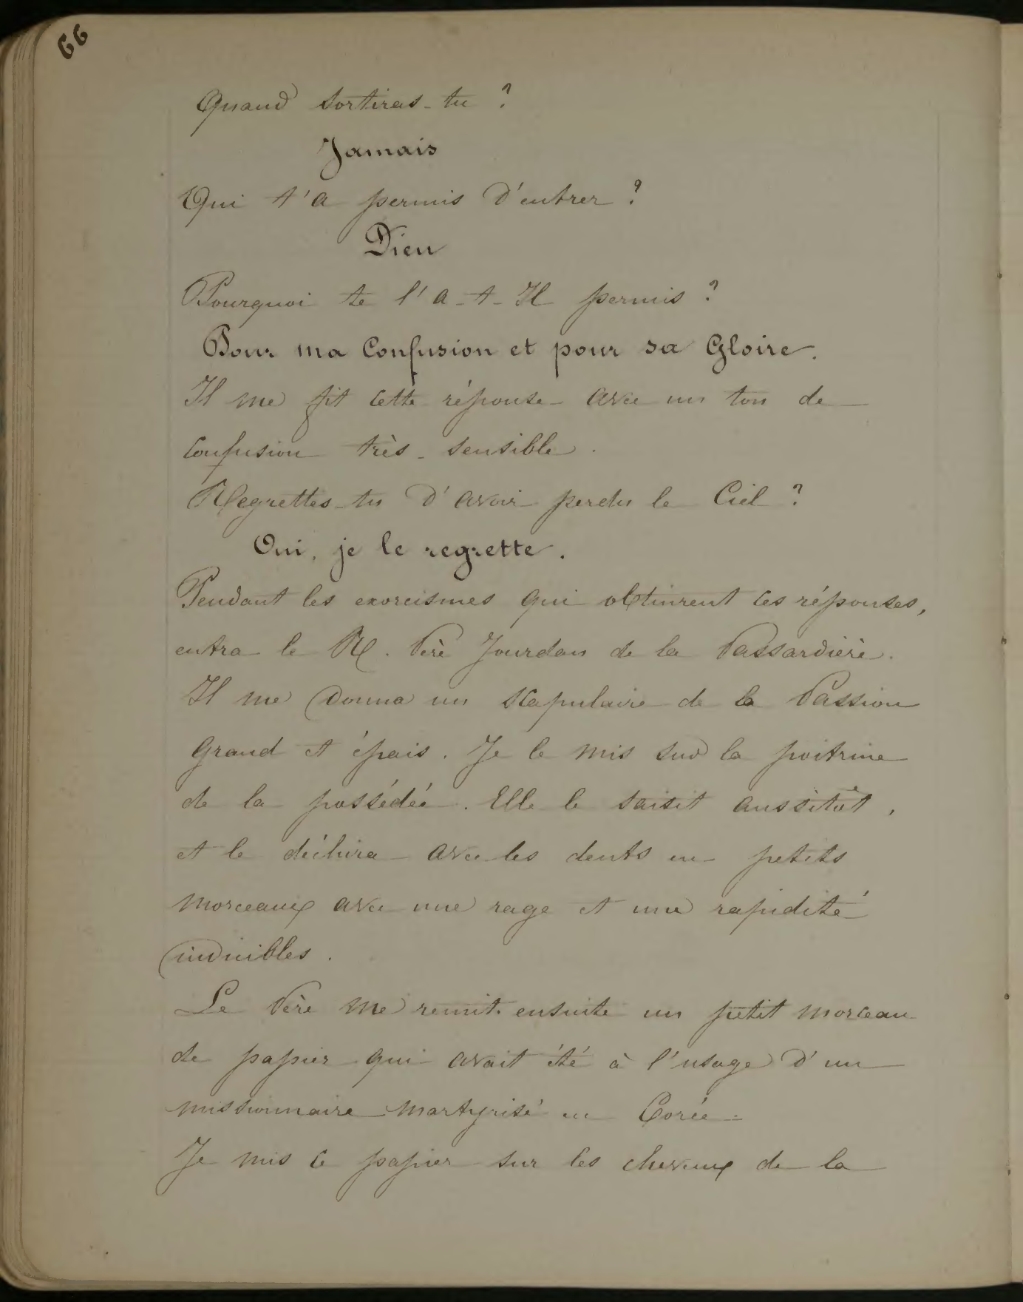 66
Quand sortiras-tu ?
Jamais
Qui t'a permis d'entrer ?
Dieu
Pourquoi te l'a-t-Il permis ?
Pour ma Confusion et pour sa Gloire.
Il me fit cette réponse avec un ton de
confusion très-sensible.
Regrettes-tu d'avoir perdu le Ciel ?
Oui, je le regrette.
Pendant les exorcismes qui obtinrent ces réponses,
entra le R. Père Jourdan de la Passardière.
Il me donna un scapulaire de la Passion
grand et épais. Je le mis sur la poitrine
de la possédée. Elle le saisit aussitôt,
et le déchira avec les dents en petits
morceaux avec une rage et une rapidité
indicibles.
Le Père me remit ensuite un petit morceau
de papier qui avait été à l'usage d'un
missionnaire martyrisé en Corée.
Je mis ce papier sur les cheveux de la